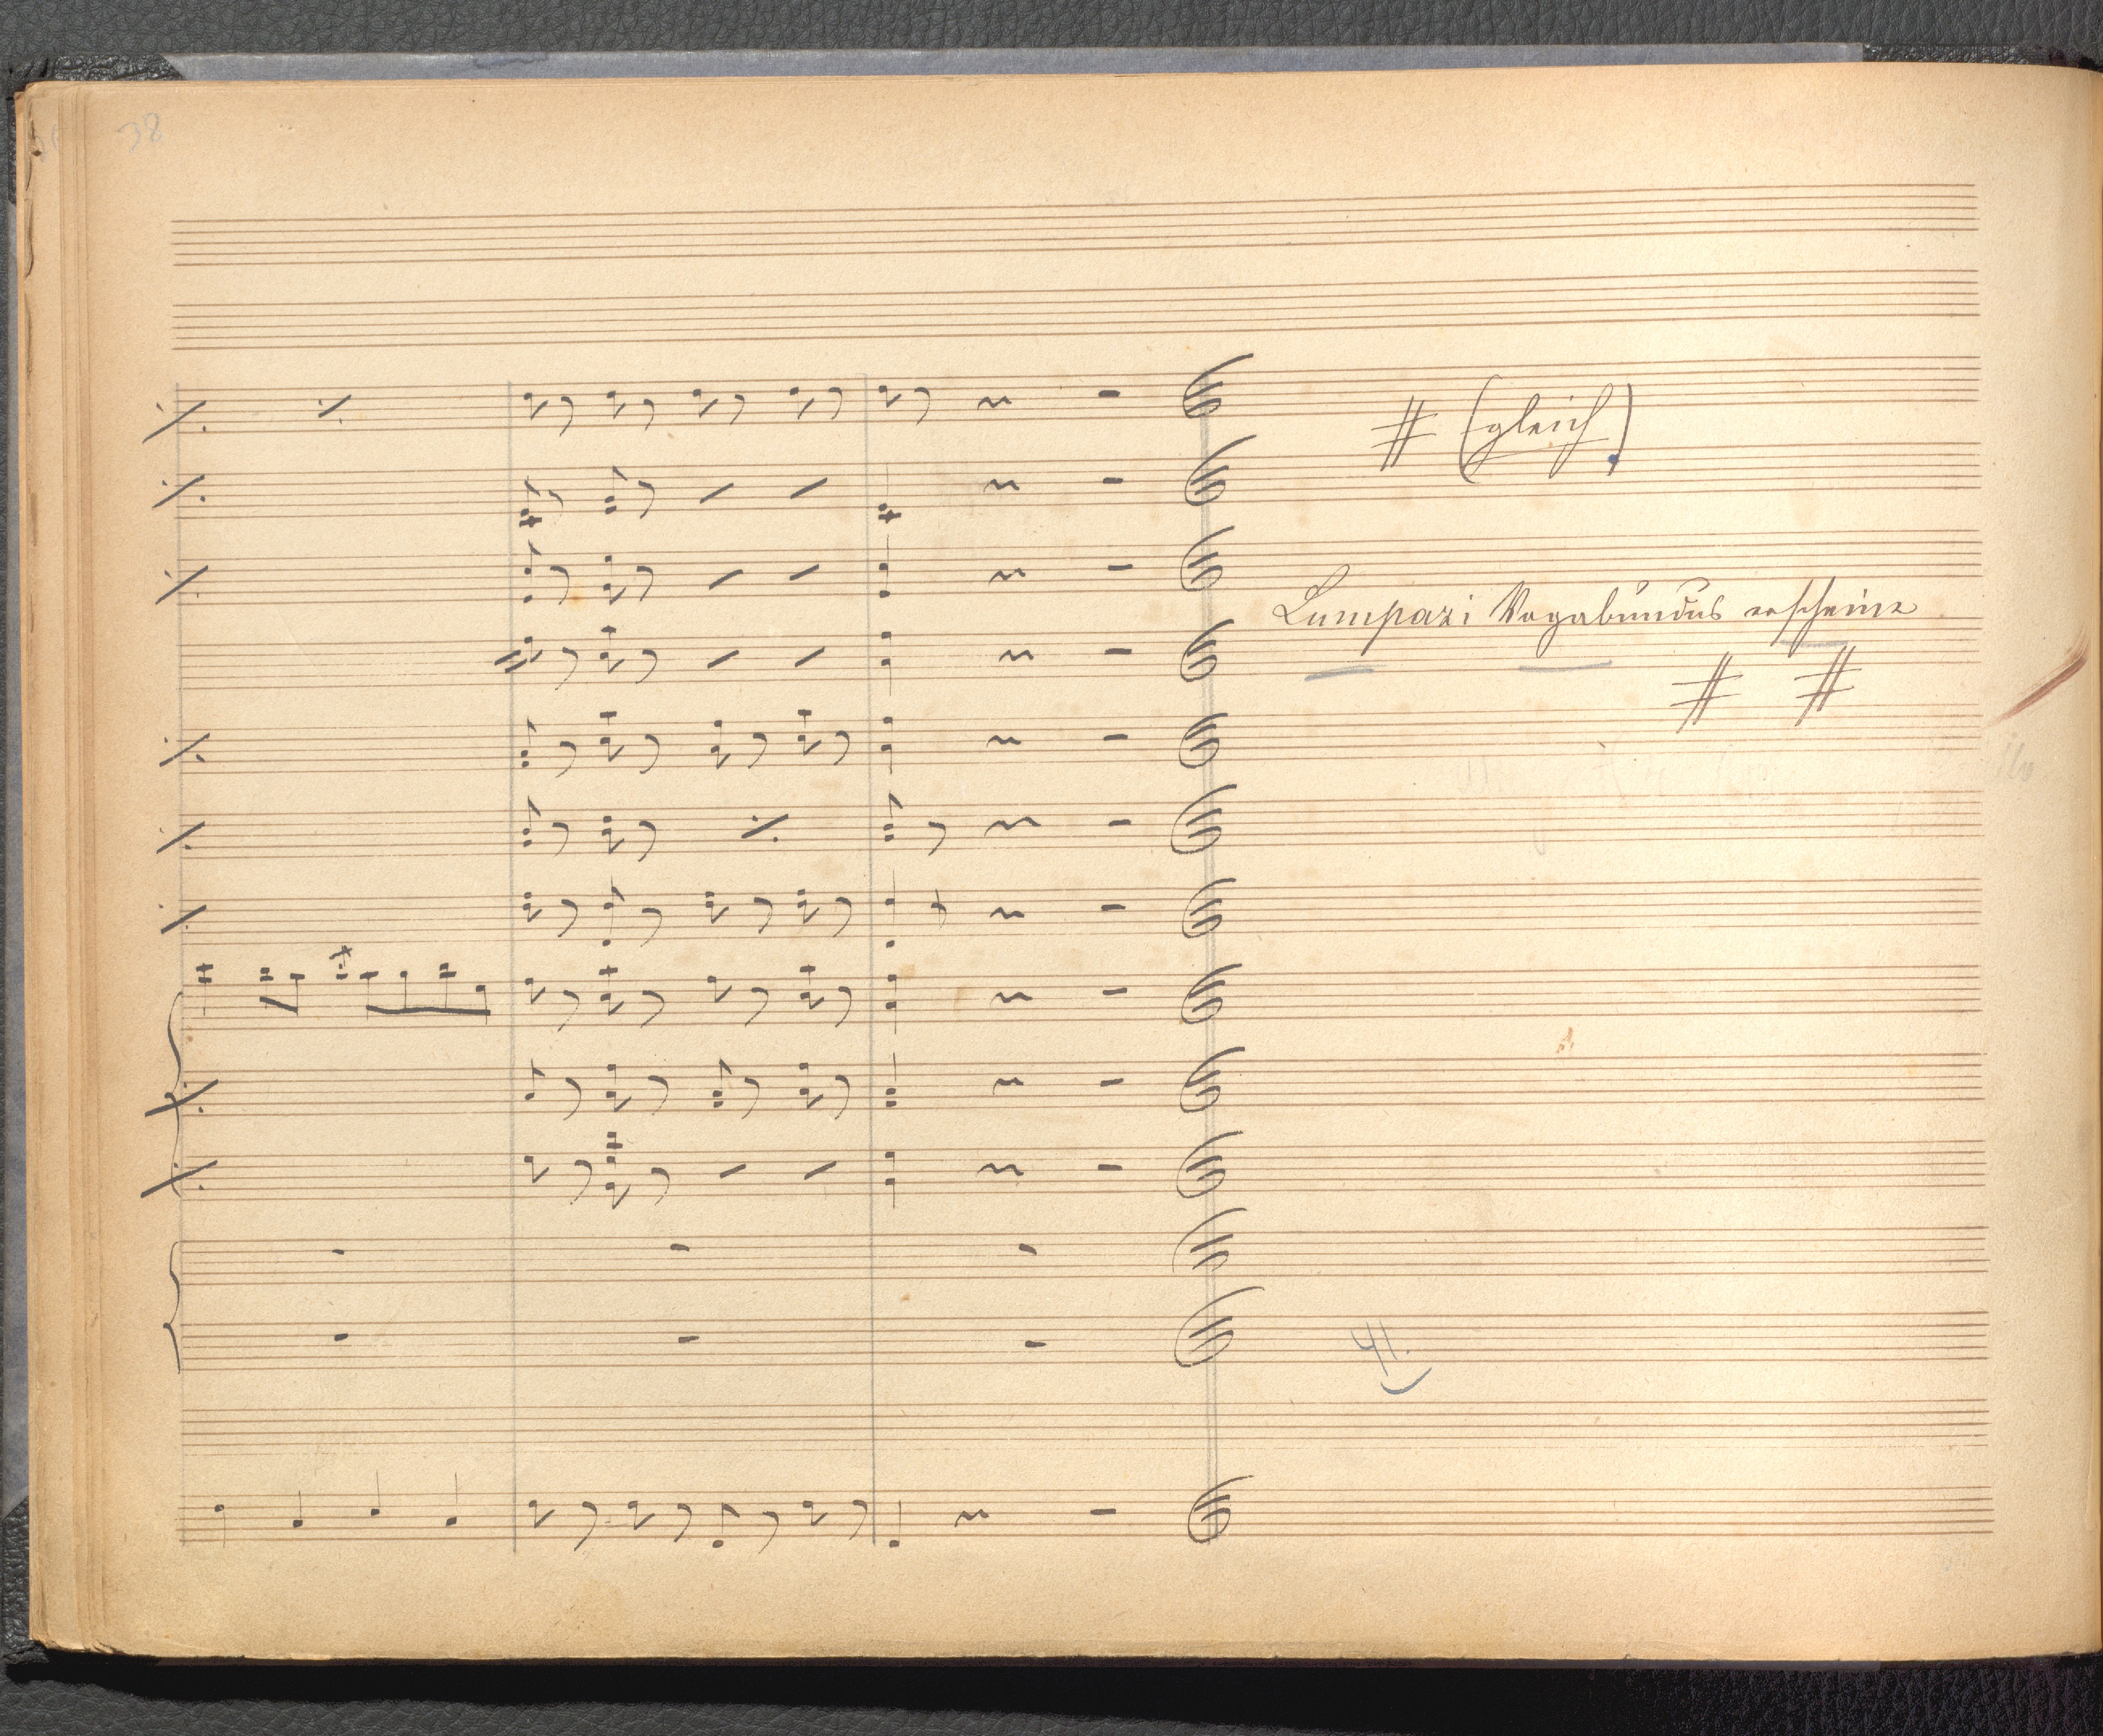 38
# (gleich)
Lumpazi Vagabundus erscheine
# #
41.